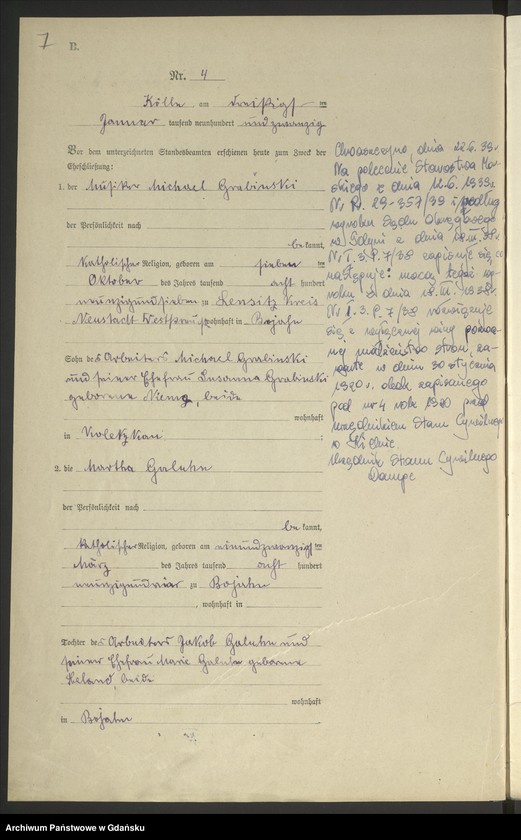 7
B.
Nr. 4
Kölln, am dreißigsten
Januar tausend neunhundert und zwanzig
Vor dem unterzeichneten Standesbeamten erschienen heute zum Zweck der
Eheschließung:
1. der Musiker Michael Grabinski
der Persönlichkeit nach
be kannt,
katholischer Religion, geboren am sieben ten
Oktober des Jahres tausend acht hundert
neunzigundsieben zu Lensitz Kreis
Neustadt Westpreuß wohnhaft in Bojahn
Sohn des Arbeiters Michael Grabinski
und seiner Ehefrau Susanna Grabinski
geborene , beide
wohnhaft
in Kolletzkau
2. die Martha Galuhn
der Persönlichkeit nach
be kannt,
katholischer Religion, geboren am einundzwanzigsten
März des Jahres tausend acht hundert
neunzigundvier zu Bojahn
, wohnhaft in
Tochter des Arbeiters Jakob Galuhn und
seiner Ehefrau Marie Galuhn geborene
beide
wohnhaft
in Bojahn
Chwaszczyno, dnia 22.6.39.
Na polecenie Starostwa Mor-
skiego z dnia 12.6.1939.
Nr. 29-357/39 i według
wyroku Sądu Okręgowego
w Gdyni z dnia
Nr. I. 3. P. 7/38 zapisuje się co
następuje: mocą tegoż wy-
roku z dnia 1938 r.
Nr. I. 3. P. 7/38 rozwiązuje
się z wyłącznej winy pozwa-
nej małżeństwo stron, za-
warte w dniu 30 stycznia
1920 r. obok zapisanego
pod nr 4 roku 1920 przed
urzędnikiem Stanu Cywilnego
w Kielnie.
Urzędnik Stanu Cywilnego
Dampc
Archiwum Państwowe w Gdańsku